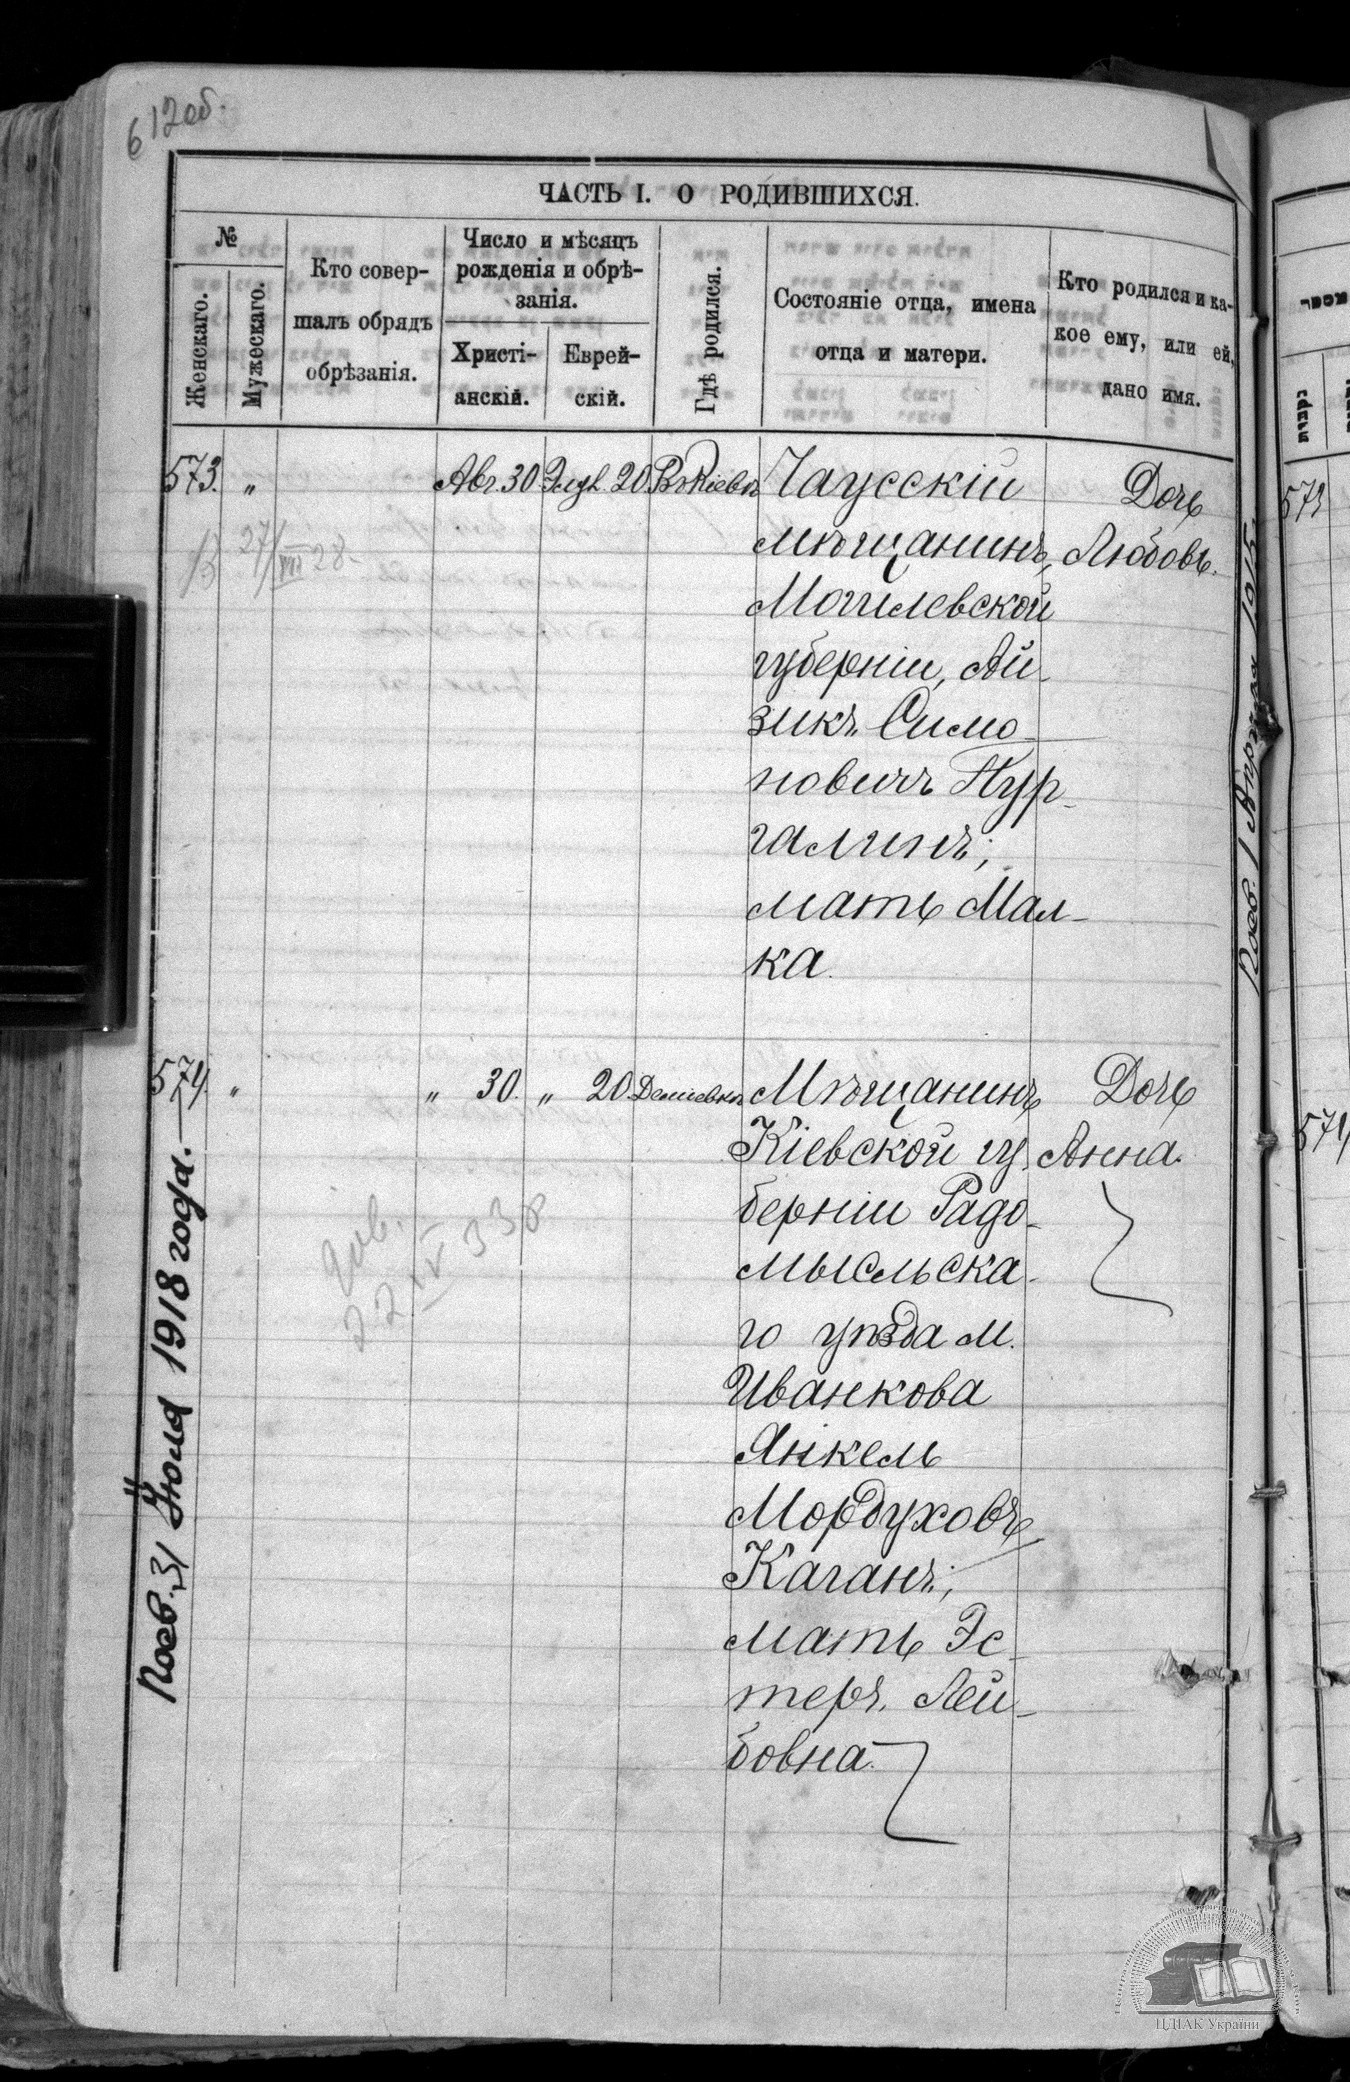 612об.
ЧАСТЬ I. О РОДИВШИХСЯ.
№
Женскаго.
Мужескаго.
Кто совер-
шалъ обрядъ
обрѣзанія.
Число и мѣсяцъ
рожденія и обрѣ-
занія.
Христі-
анскій.
Еврей-
скій.
Гдѣ родился.
Состояніе отца, имена
отца и матери.
Кто родился и ка-
кое ему, или ей,
дано имя.
573. " Авг. 30. 20. Въ Кіевѣ Чаусскій Дочь
мѣщанинъ, Любовь.
Могилевской
губерніи, Ай-
зикъ Симо-
новичъ Нур-
галинъ;
мать Мал-
ка.
27/VIII 28.
574. " " 30. " 20. Деміевкѣ Мѣщанинъ Дочь
Кіевской гу- Анна.
берніи Радо-
мысльска-
го уѣзда м.
Иванкова
Янкель
Мордуховъ
Каганъ;
мать Эс-
теръ Лей-
бовна.
22 IV 338
Посв. 31 Іюля 1918 года.
Посв. 1 Апрѣля 1915
573
574
ЦДІАК України